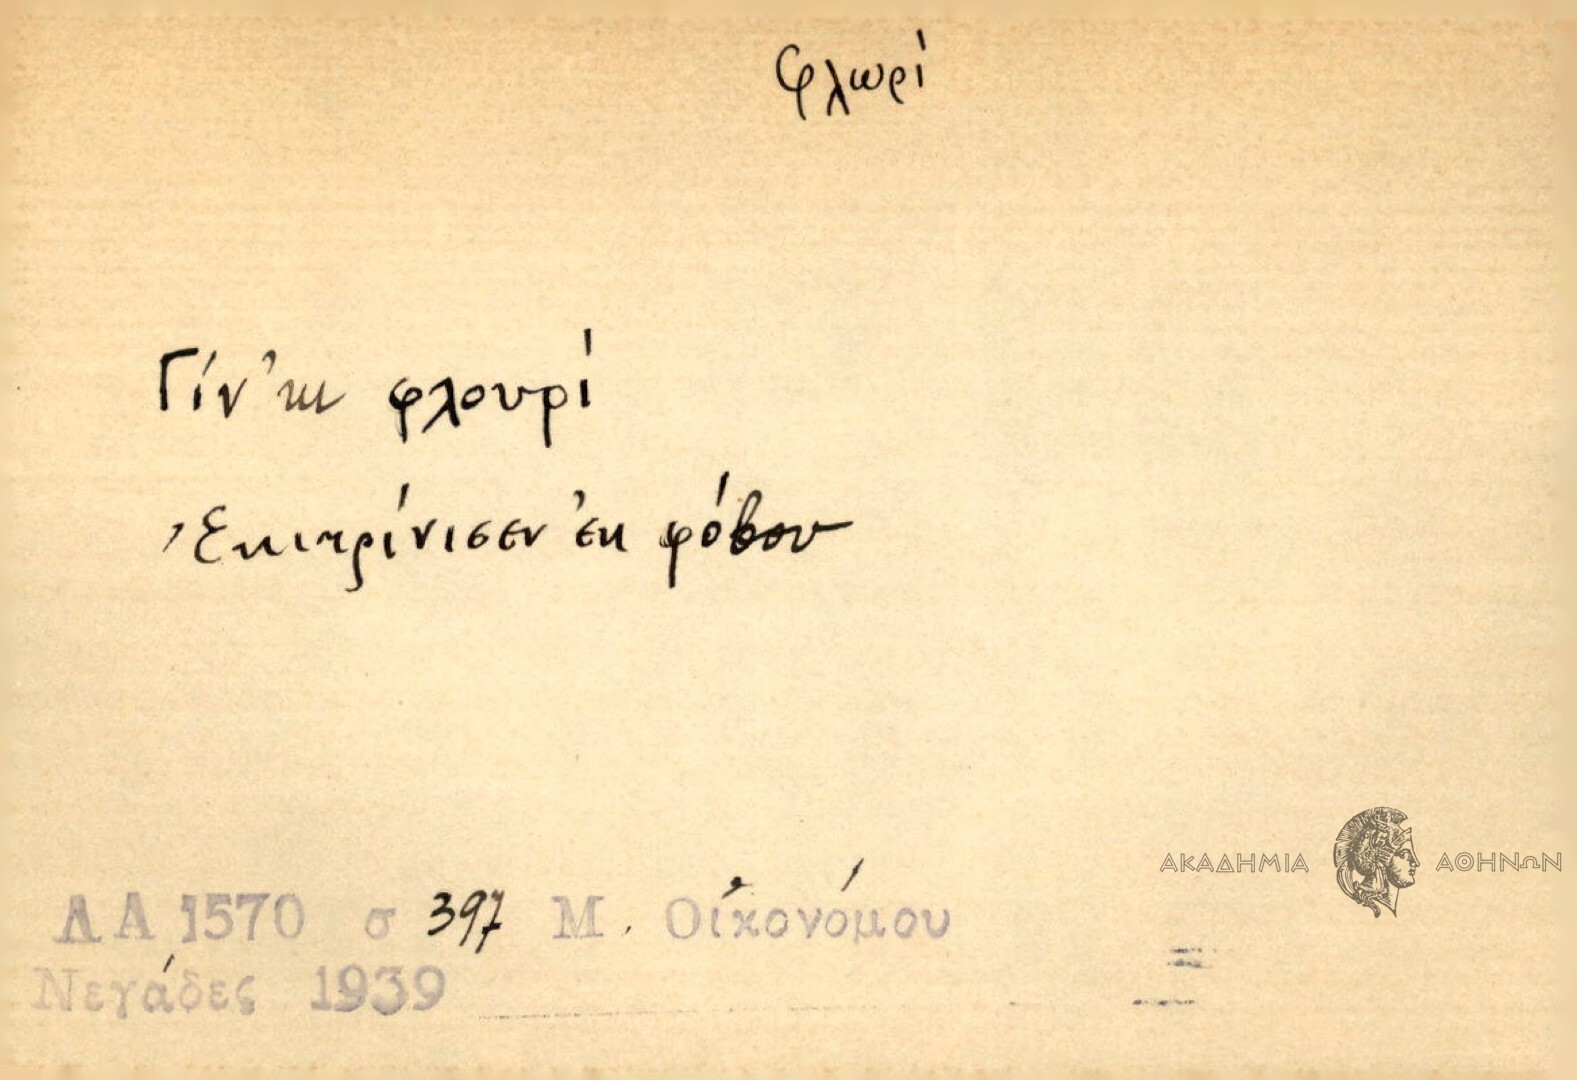 φλωρί
Γίν'κι φλουρί
Ἐκιτρίνισεν ἐκ φόβου
ΑΚΑΔΗΜΙΑ ΑΘΗΝΩΝ
ΛΑ 1570 σ 397 Μ. Οἰκονόμου
Νεγάδες 1939